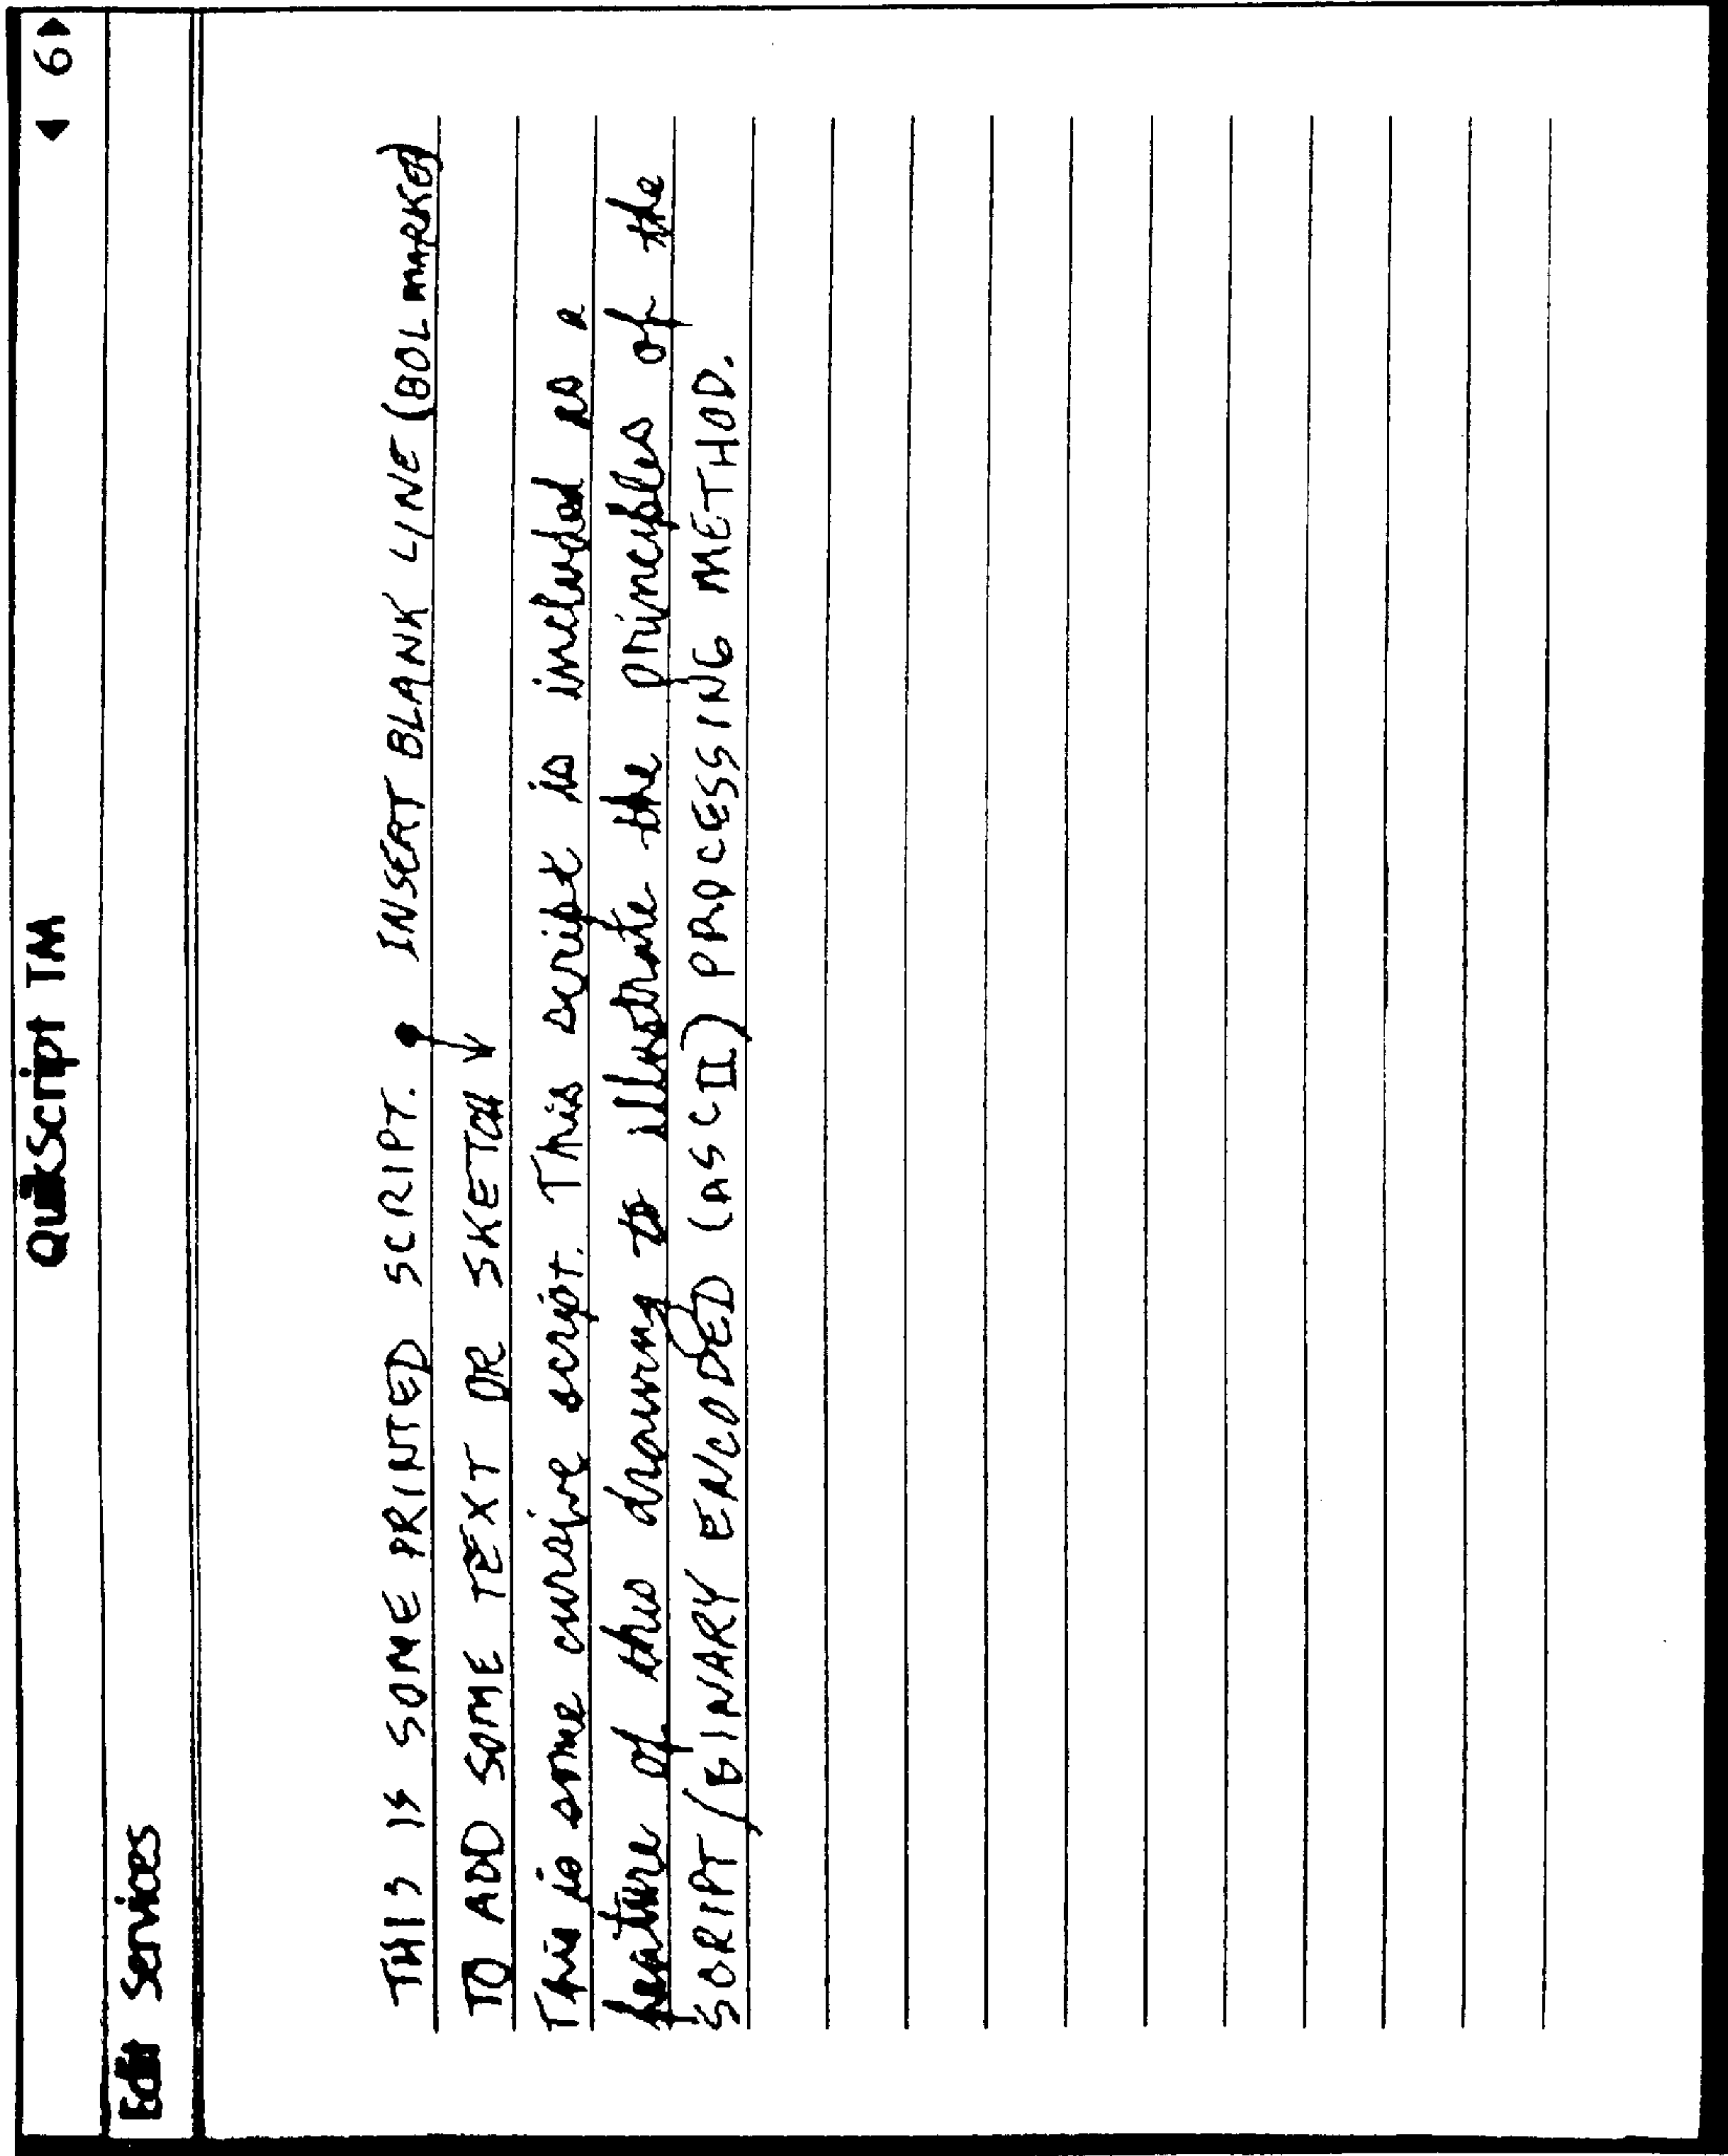 QuikScript TM ◀ 6▶
Edit Services
THIS IS SOME PRINTED SCRIPT. INSERT BLANK LINE (BOL MARKED)
TO ADD SOME TEXT OR SKETCH
This is some cursive script. This script is included as a
feature of this drawing to illustrate the principles of the
SCRIPT/BINARY ENCODED (ASCII) PROCESSING METHOD.